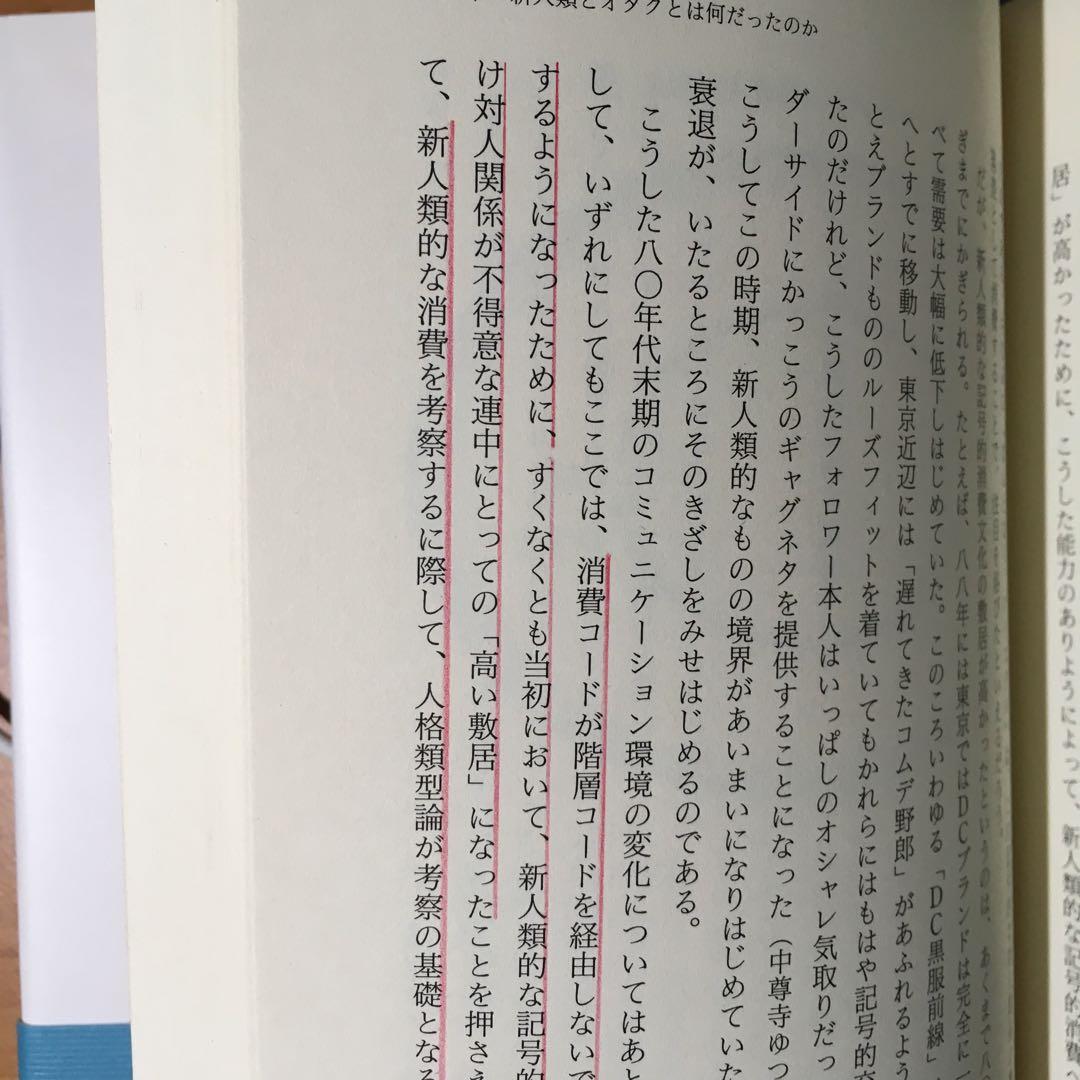 新人類とオタクとは何だったのか
居」が高かったために、こうした能力のありようによって、新人類的な記号的消費へ
だが、新人類的な記号的消費文化の敷居が高かったというのは、あくまで八
ぎまでにかぎられる。たとえば、八八年には東京ではDCブランドは完全に一
べて需要は大幅に低下しはじめていた。このころいわゆる「DC黒服前線」
へとすでに移動し、東京近辺には「遅れてきたコムデ野郎」があふれるよう
とえブランドもののルーズフィットを着ていてもかれらにはもはや記号的
たのだけれど、こうしたフォロワー本人はいっぱしのオシャレ気取りだっ
ダーサイドにかっこうのギャグネタを提供することになった(中尊寺ゆつ
こうしてこの時期、新人類的なものの境界があいまいになりはじめていた
衰退が、いたるところにそのきざしをみせはじめるのである。
こうした八〇年代末期のコミュニケーション環境の変化についてはあと
して、いずれにしてもここでは、消費コードが階層コードを経由しないで
するようになったために、すくなくとも当初において、新人類的な記号的
け対人関係が不得意な連中にとっての「高い敷居」になったことを押さえ
て、新人類的な消費を考察するに際して、人格類型論が考察の基礎となる